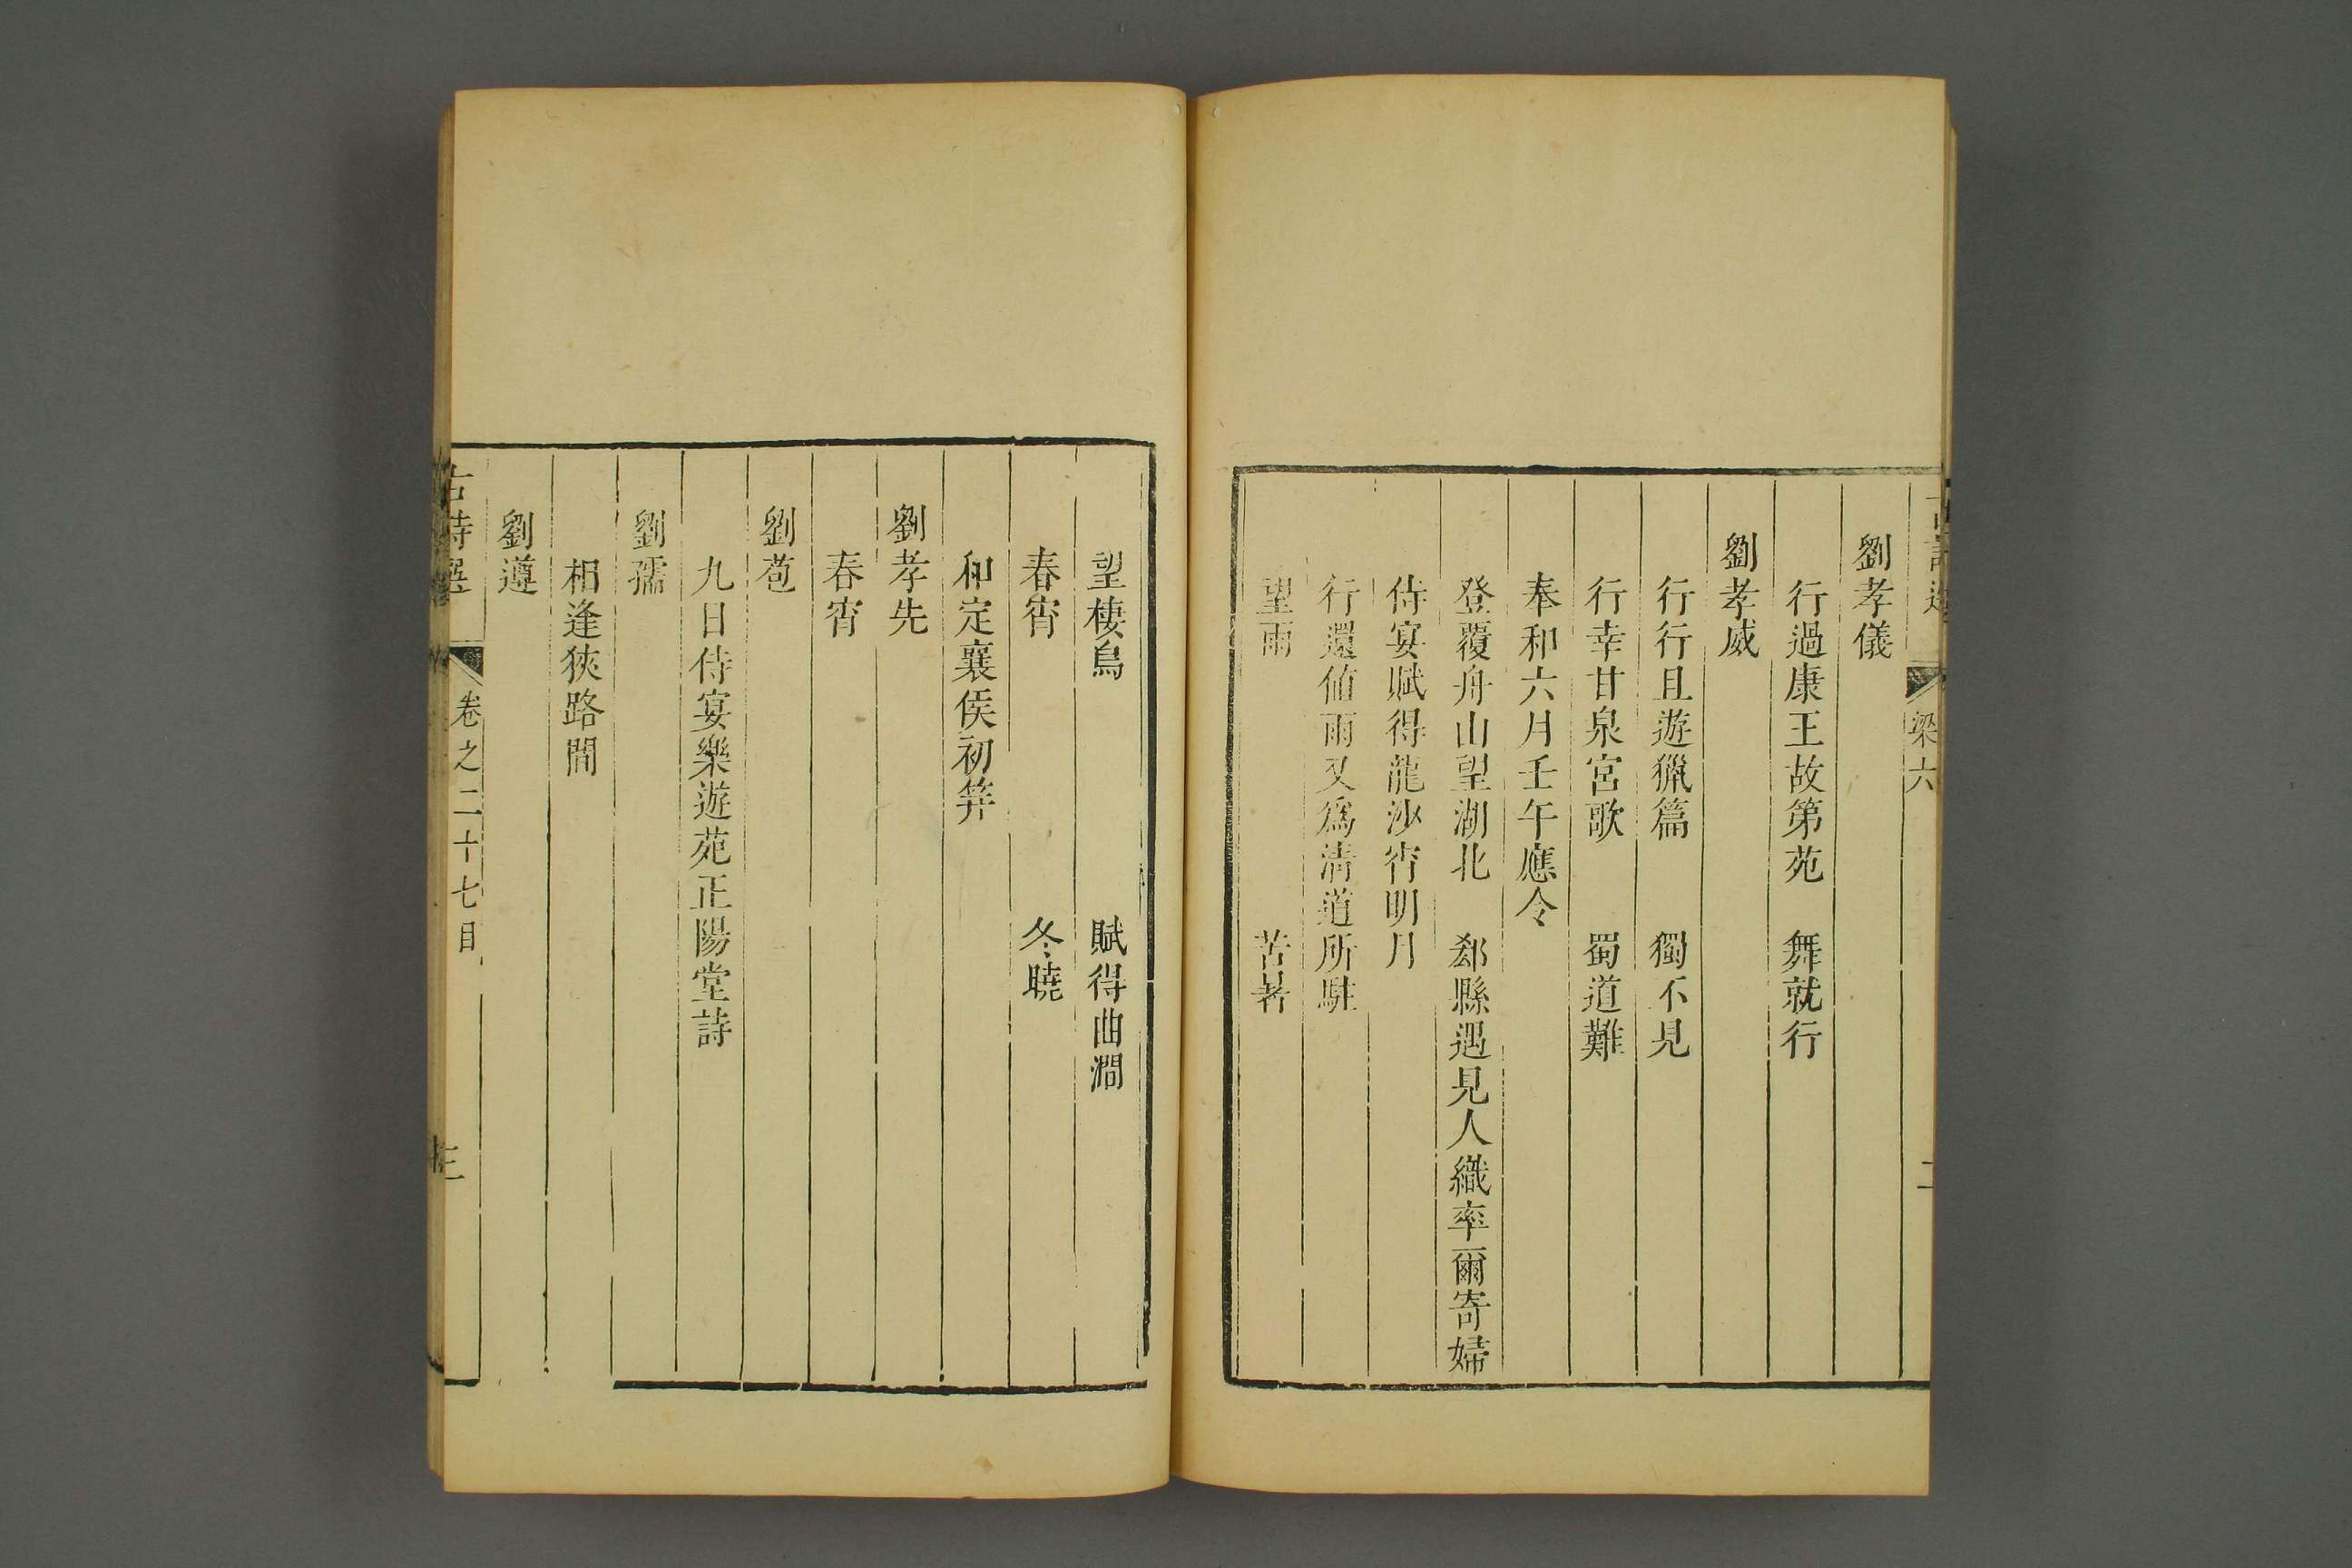 梁六
二
劉孝儀
行過康王故第苑 舞就行
劉孝威
行行且遊獵篇 獨不見
行幸甘泉宮歌 蜀道難
奉和六月壬午應令
登覆舟山望湖北 郄縣遇見人織率爾寄婦
侍宴賦得龍沙宵明月
行還值雨又爲清道所駐
望雨 苦暑
望棲烏 賦得曲澗
春宵 冬曉
和定襄侯初笄
劉孝先
春宵
劉苞
九日侍宴樂遊苑正陽堂詩
劉孺
相逢狹路間
劉遵
古詩選 卷之二十七目 三